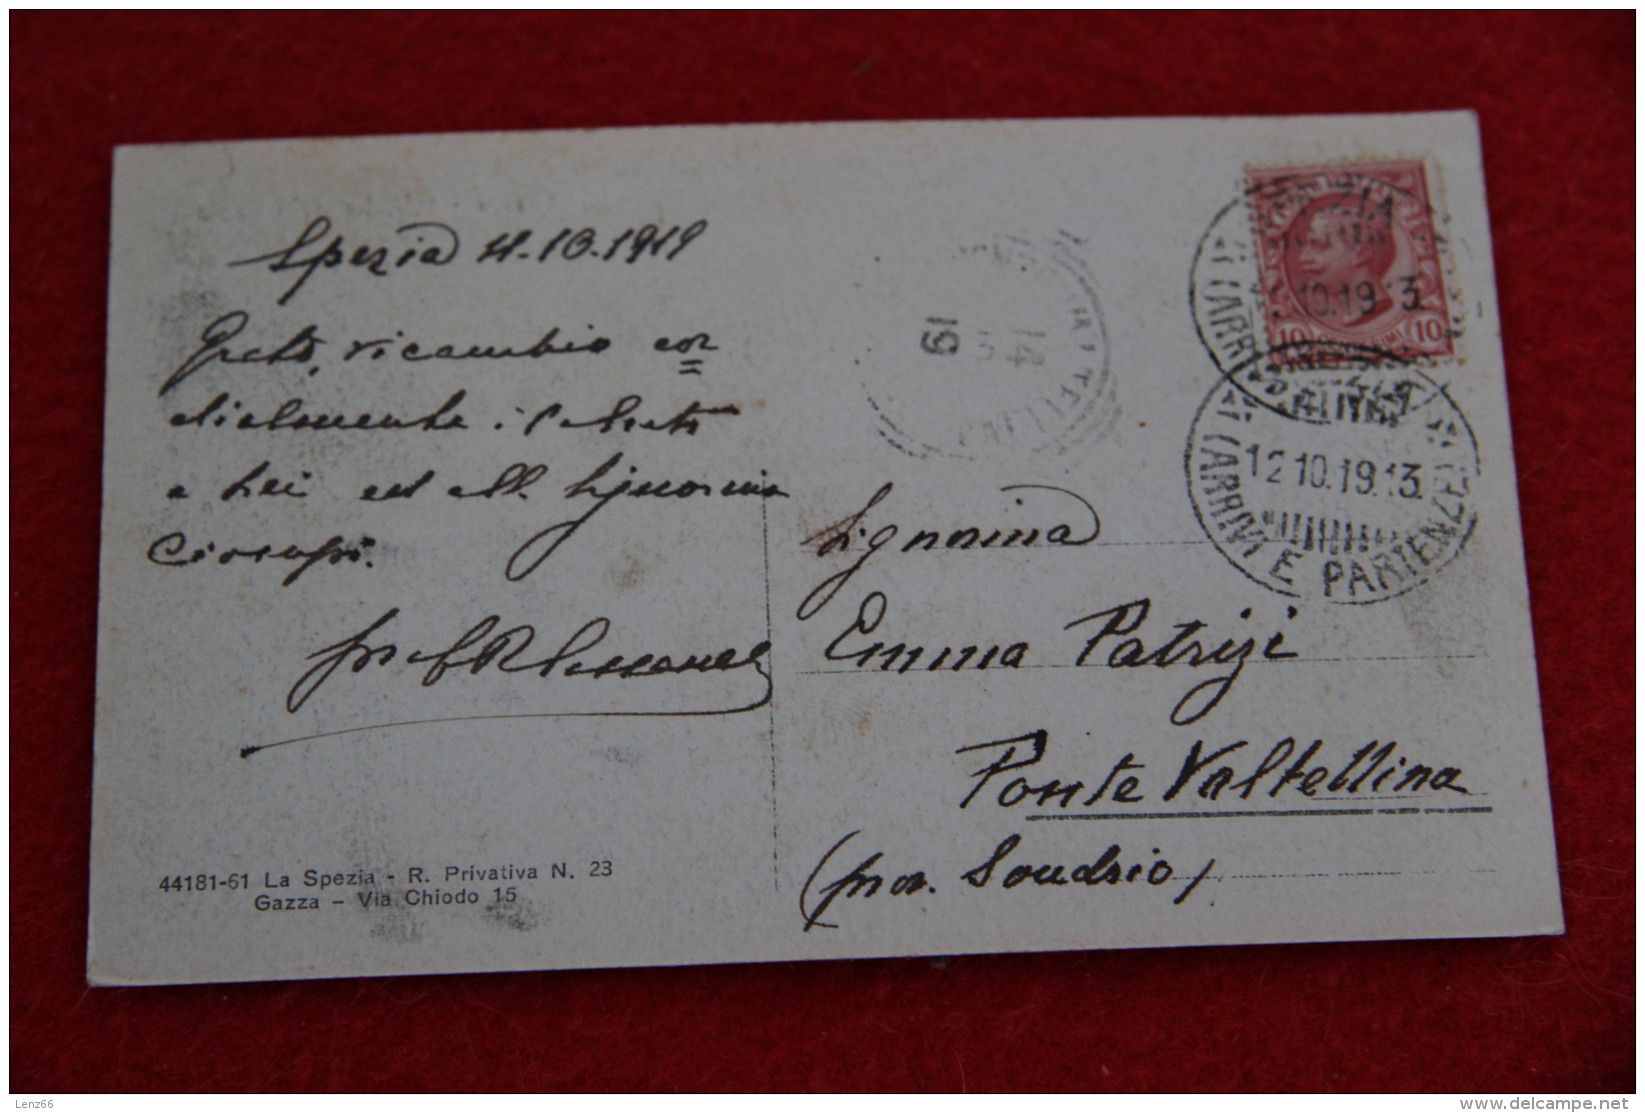 Spezia 11.10.1919
Grato, ricambio cor=
dialmente i saluti
a Lei ed alla Signorina
44181-61 La Spezia - R. Privativa N. 23
Gazza - Via Chiodo 15
14
19
10.19 13
10 10
12 10.19.13
(ARRIVI E PARTENZE)
Signorina
Emma Patrizi
Ponte Valtellina
(prov. Sondrio)
Lenz66
delcampe.net